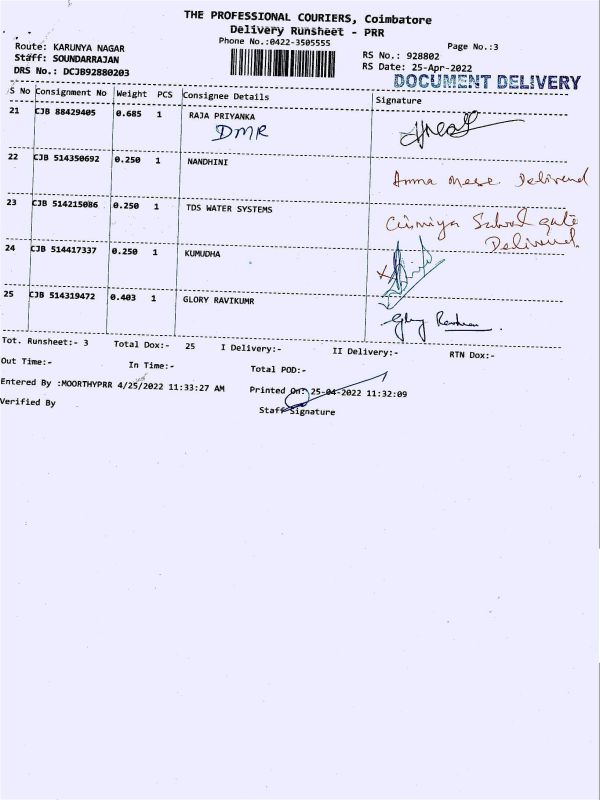 THE PROFESSIONAL COURIERS, Coimbatore
Delivery Runsheet - PRR
Phone No.:0422-3505555
Page No.:3
Route: KARUNYA NAGAR
Staff: SOUNDARRAJAN
DRS No.: DCJB92880203
RS No.: 928802
RS Date: 25-Apr-2022
DOCUMENT DELIVERY
S No Consignment No Weight PCS Consignee Details Signature
21 CJB 88429405 0.685 1 RAJA PRIYANKA
DMR
22 CJB 514350692 0.250 1 NANDHINI
Amma mess Delivered
23 CJB 514215086 0.250 1 TDS WATER SYSTEMS
School gate
Delivered
24 CJB 514417337 0.250 1 KUMUDHA
25 CJB 514319472 0.403 1 GLORY RAVIKUMR
Tot. Runsheet:- 3 Total Dox:- 25 I Delivery:- II Delivery:- RTN Dox:-
Out Time:- In Time:- Total POD:-
Entered By :MOORTHYPRR 4/25/2022 11:33:27 AM Printed On: 25-04-2022 11:32:09
Verified By Staff Signature